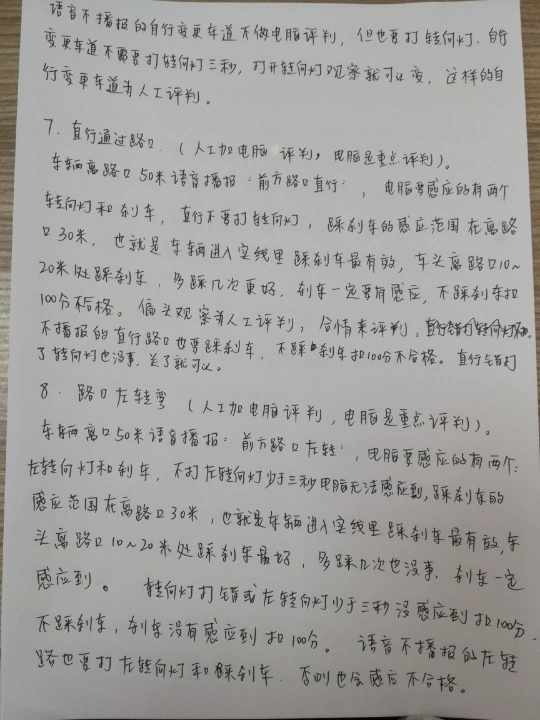 语音不播报的自行变更车道不做电脑评判，但也要打转向灯，自行
变更车道不需要打转向灯三秒，打开转向灯观察就可以变，这样的自
行变更车道为人工评判。
7、直行通过路口（人工加电脑评判，电脑是重点评判）。
车辆离路口50米语音播报：前方路口直行：，电脑要感应的有两个
转向灯和刹车，直行不要打转向灯，踩刹车的感应范围在离路
口30米，也就是车辆进入实线里踩刹车最有效，车头离路口10~
20米处踩刹车，多踩几次更好，刹车一定要有感应，不踩刹车扣
100分不合格。偏头观察为人工评判，合情来评判，直行错打转向灯
不播报的直行路口也要踩刹车，不踩刹车扣100分不合格。直行错打
了转向灯也没事，关了就可以。
8、路口左转弯（人工加电脑评判，电脑是重点评判）。
车辆离口50米语音播报：前方路口左转：，电脑要感应的有两个：
左转向灯和刹车，不打左转向灯少于三秒电脑无法感应到，踩刹车的
感应范围在离路口30米，也就是车辆进入实线里踩刹车最有效，车
头离路口10~20米处踩刹车最好，多踩几次也没事，刹车一定
感应到。转向灯打错或左转向灯少于三秒没感应到扣100分
不踩刹车，刹车没有感应到扣100分。语音不播报的左转
路也要打左转向灯和踩刹车，否则也会感应不合格。